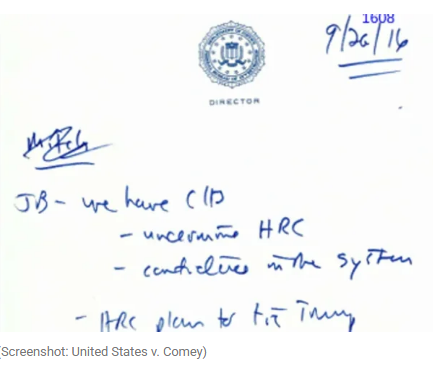 1608
9/26/16
DIRECTOR
JB - we have
- undermine HRC
- candidates in the system
- HRC plan to tie Trump
(Screenshot: United States v. Comey)